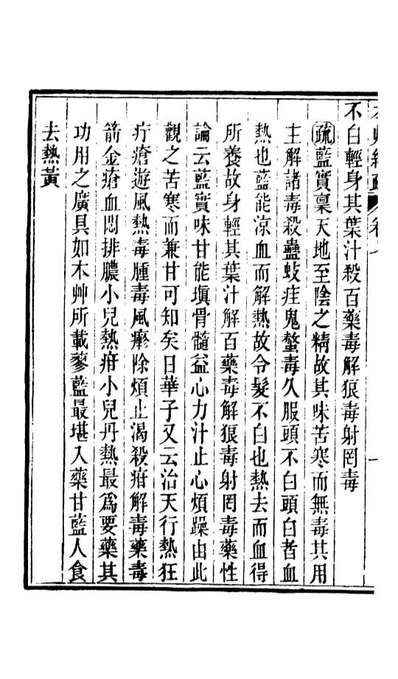 不白輕身其葉汁殺百藥毒解狼毒射罔毒
疏藍實稟天地至陰之精故其味苦寒而無毒其用
主解諸毒殺蠱蚑疰鬼螫毒久服頭不白頭白者血
熱也藍能涼血而解熱故令髮不白也熱去而血得
所養故身輕其葉汁解百藥毒解狼毒射罔毒藥性
論云藍實味甘能塡骨髓益心力汁止心煩躁由此
觀之苦寒而兼甘可知矣日華子又云治天行熱狂
疔瘡遊風熱毒腫毒風癢除煩止渴殺疳解毒藥毒
箭金瘡血悶排膿小兒熱疳小兒丹熱最爲要藥其
功用之廣具如木艸所載蓼藍最堪入藥甘藍人食
去熱黃